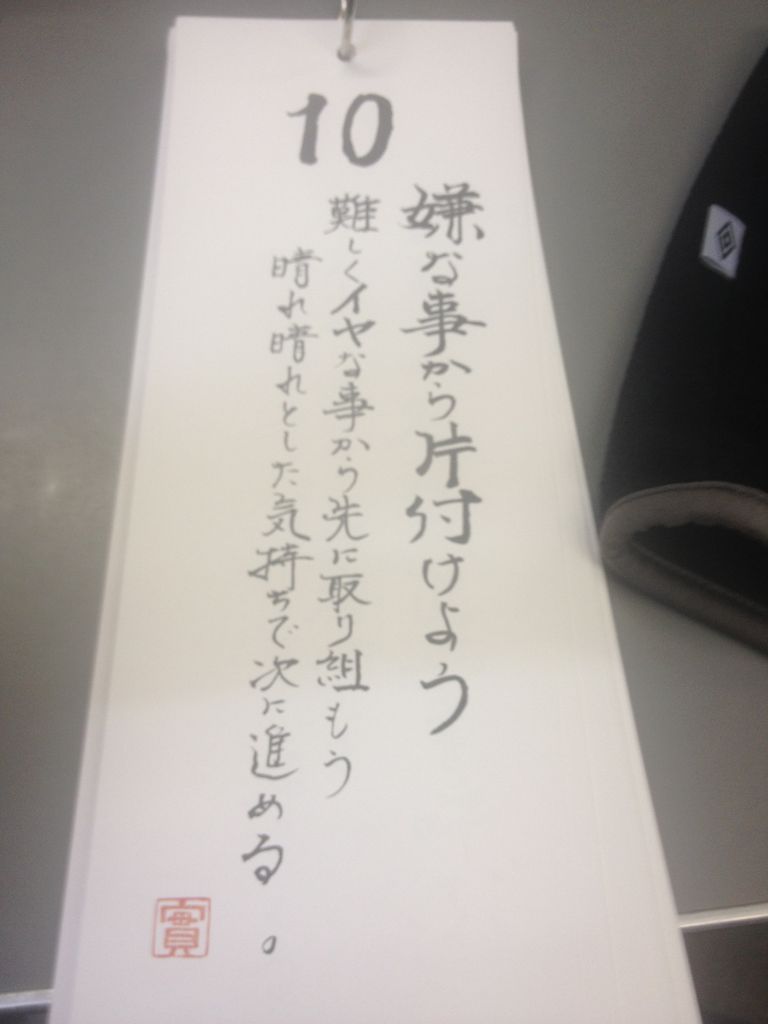 10
嫌な事から片付けよう
難しくイヤな事から先に取り組もう
晴れ晴れとした気持ちで次に進める。
實